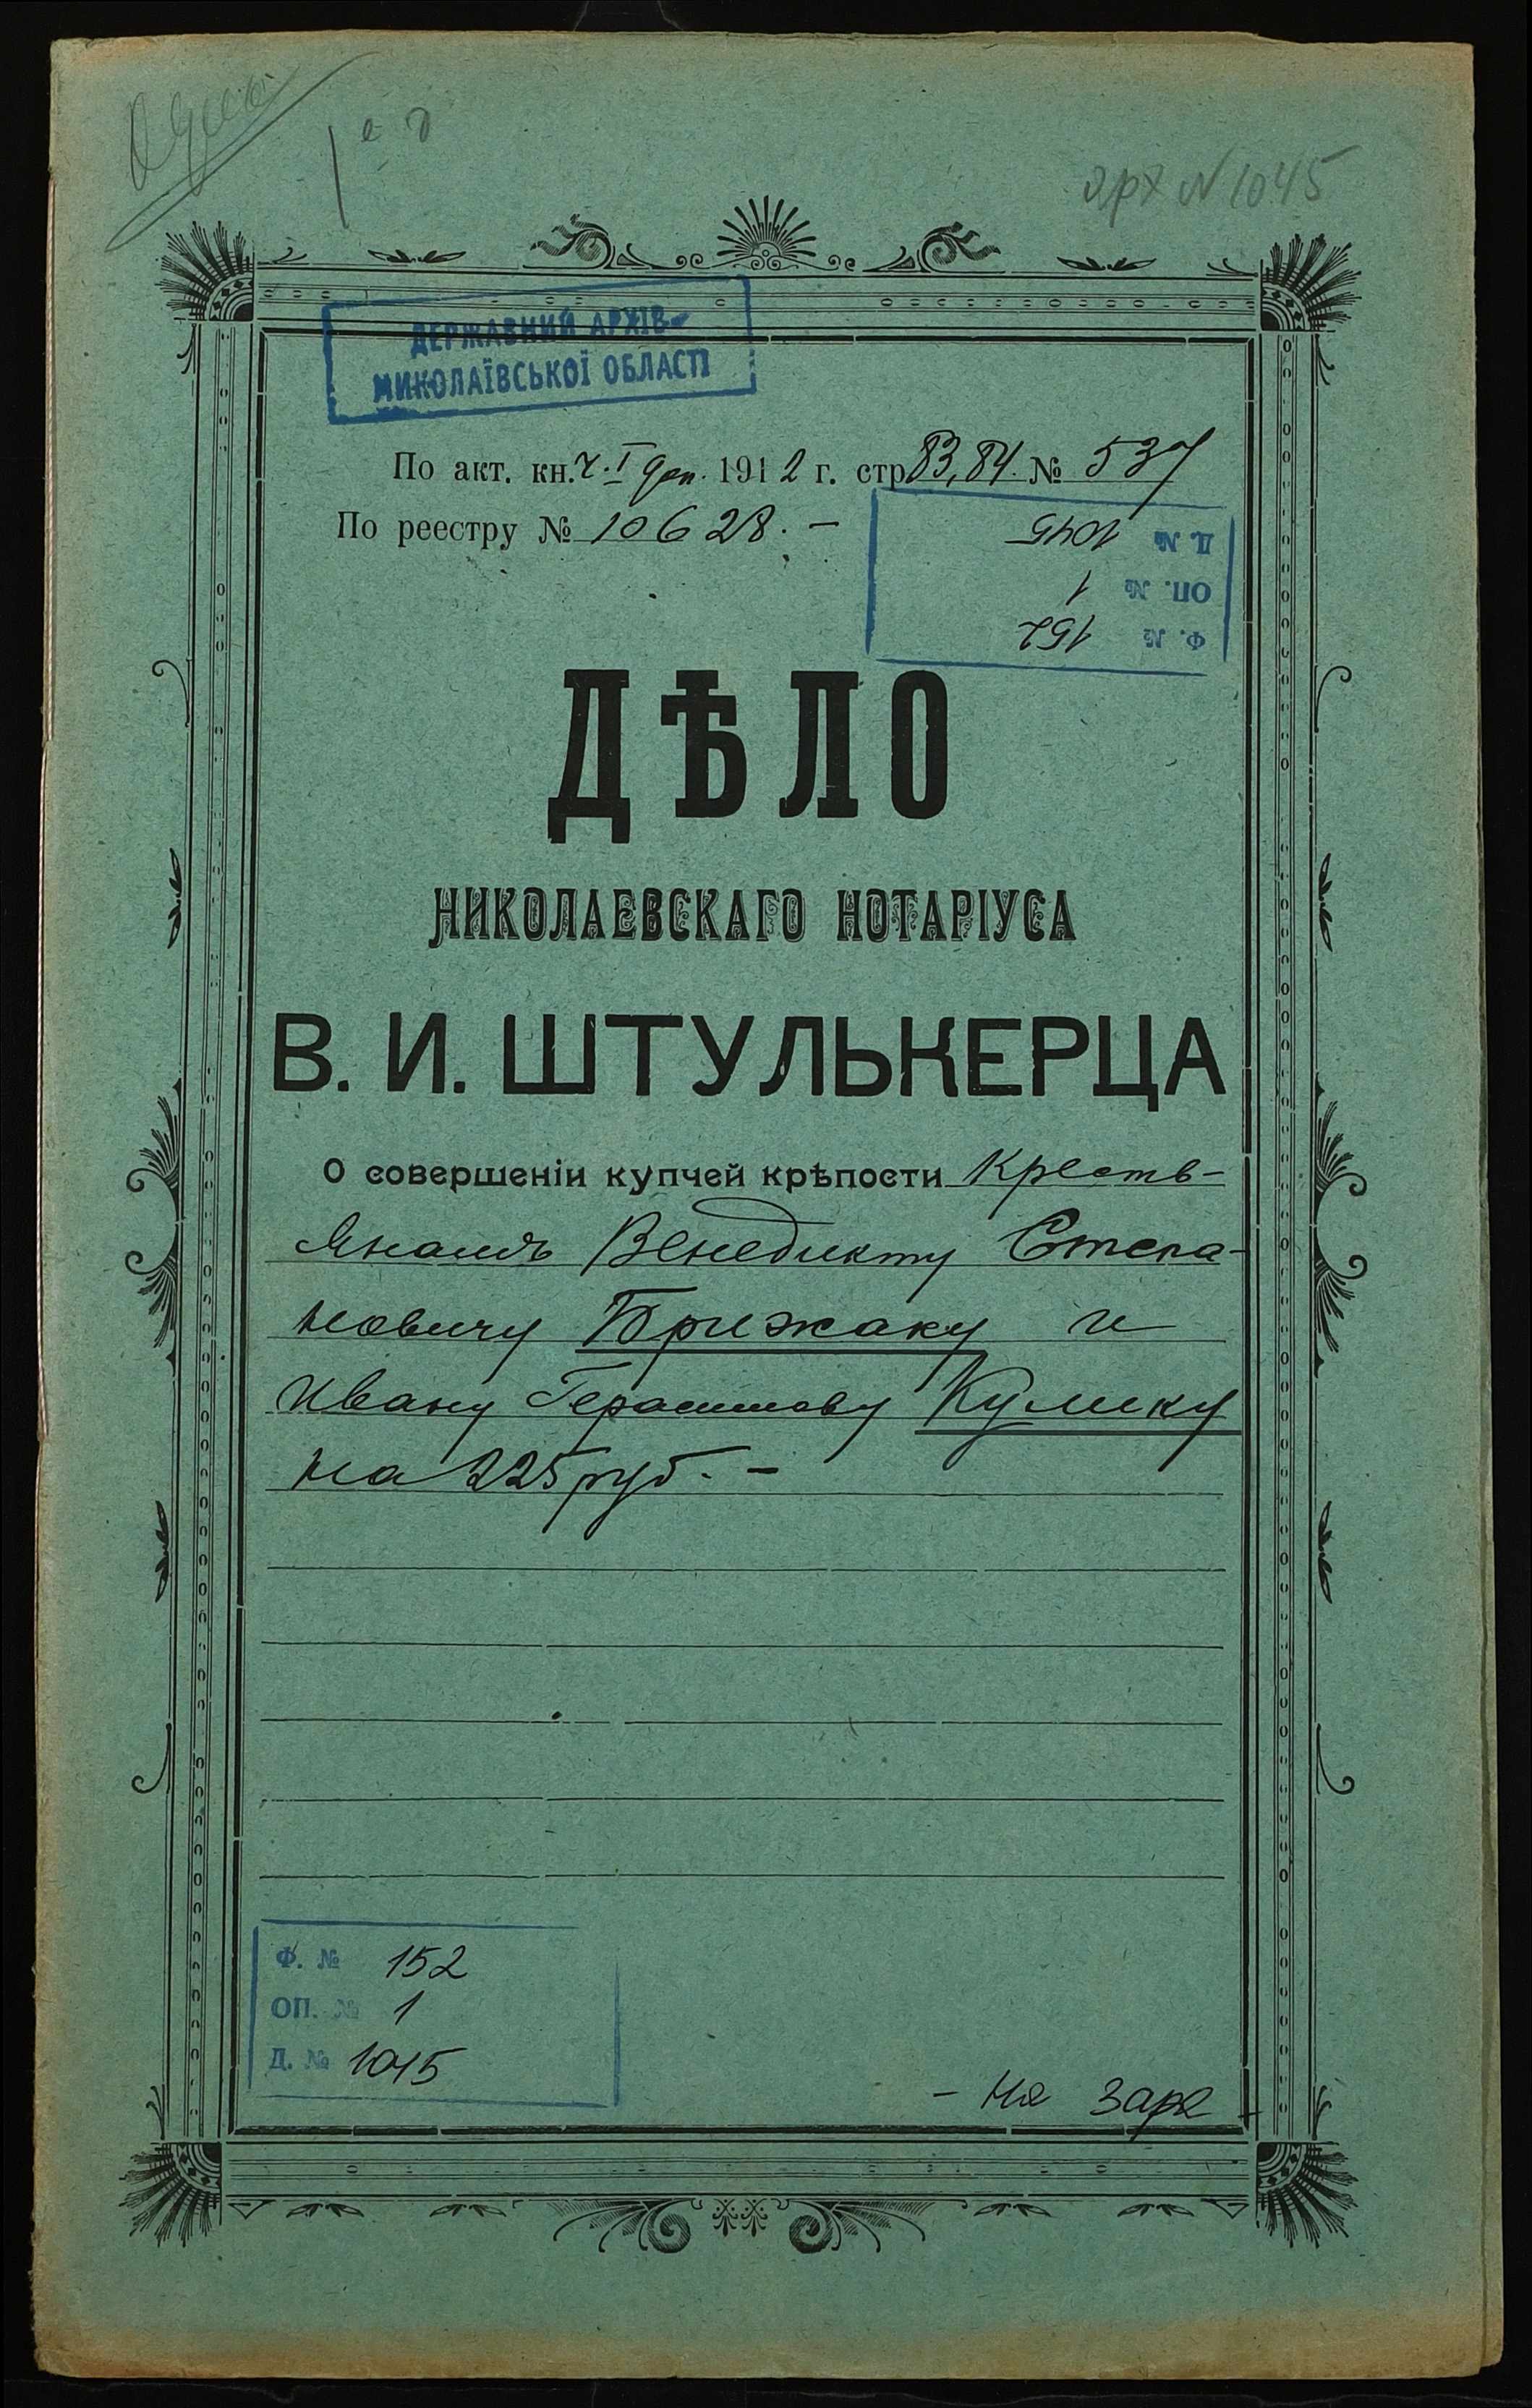 арх N 1045
ДЕРЖАВНИЙ АРХІВ
МИКОЛАЇВСЬКОЇ ОБЛАСТІ
По акт. кн. ч. I доп. 1912 г. стр 83, 84. № 537
По реестру № 10628. –
Д. № 1045
ОП. № 1
Ф. № 152
ДѢЛО
НИКОЛАЕВСКАГО НОТАРІУСА
В. И. ШТУЛЬКЕРЦА
О совершеніи купчей крѣпости Кресть-
янамъ Венедикту Степа-
новичу Брижаку и
Ивану Герасимову Кулику
на 225 руб. –
Ф. № 152
ОП. № 1
Д. № 1045